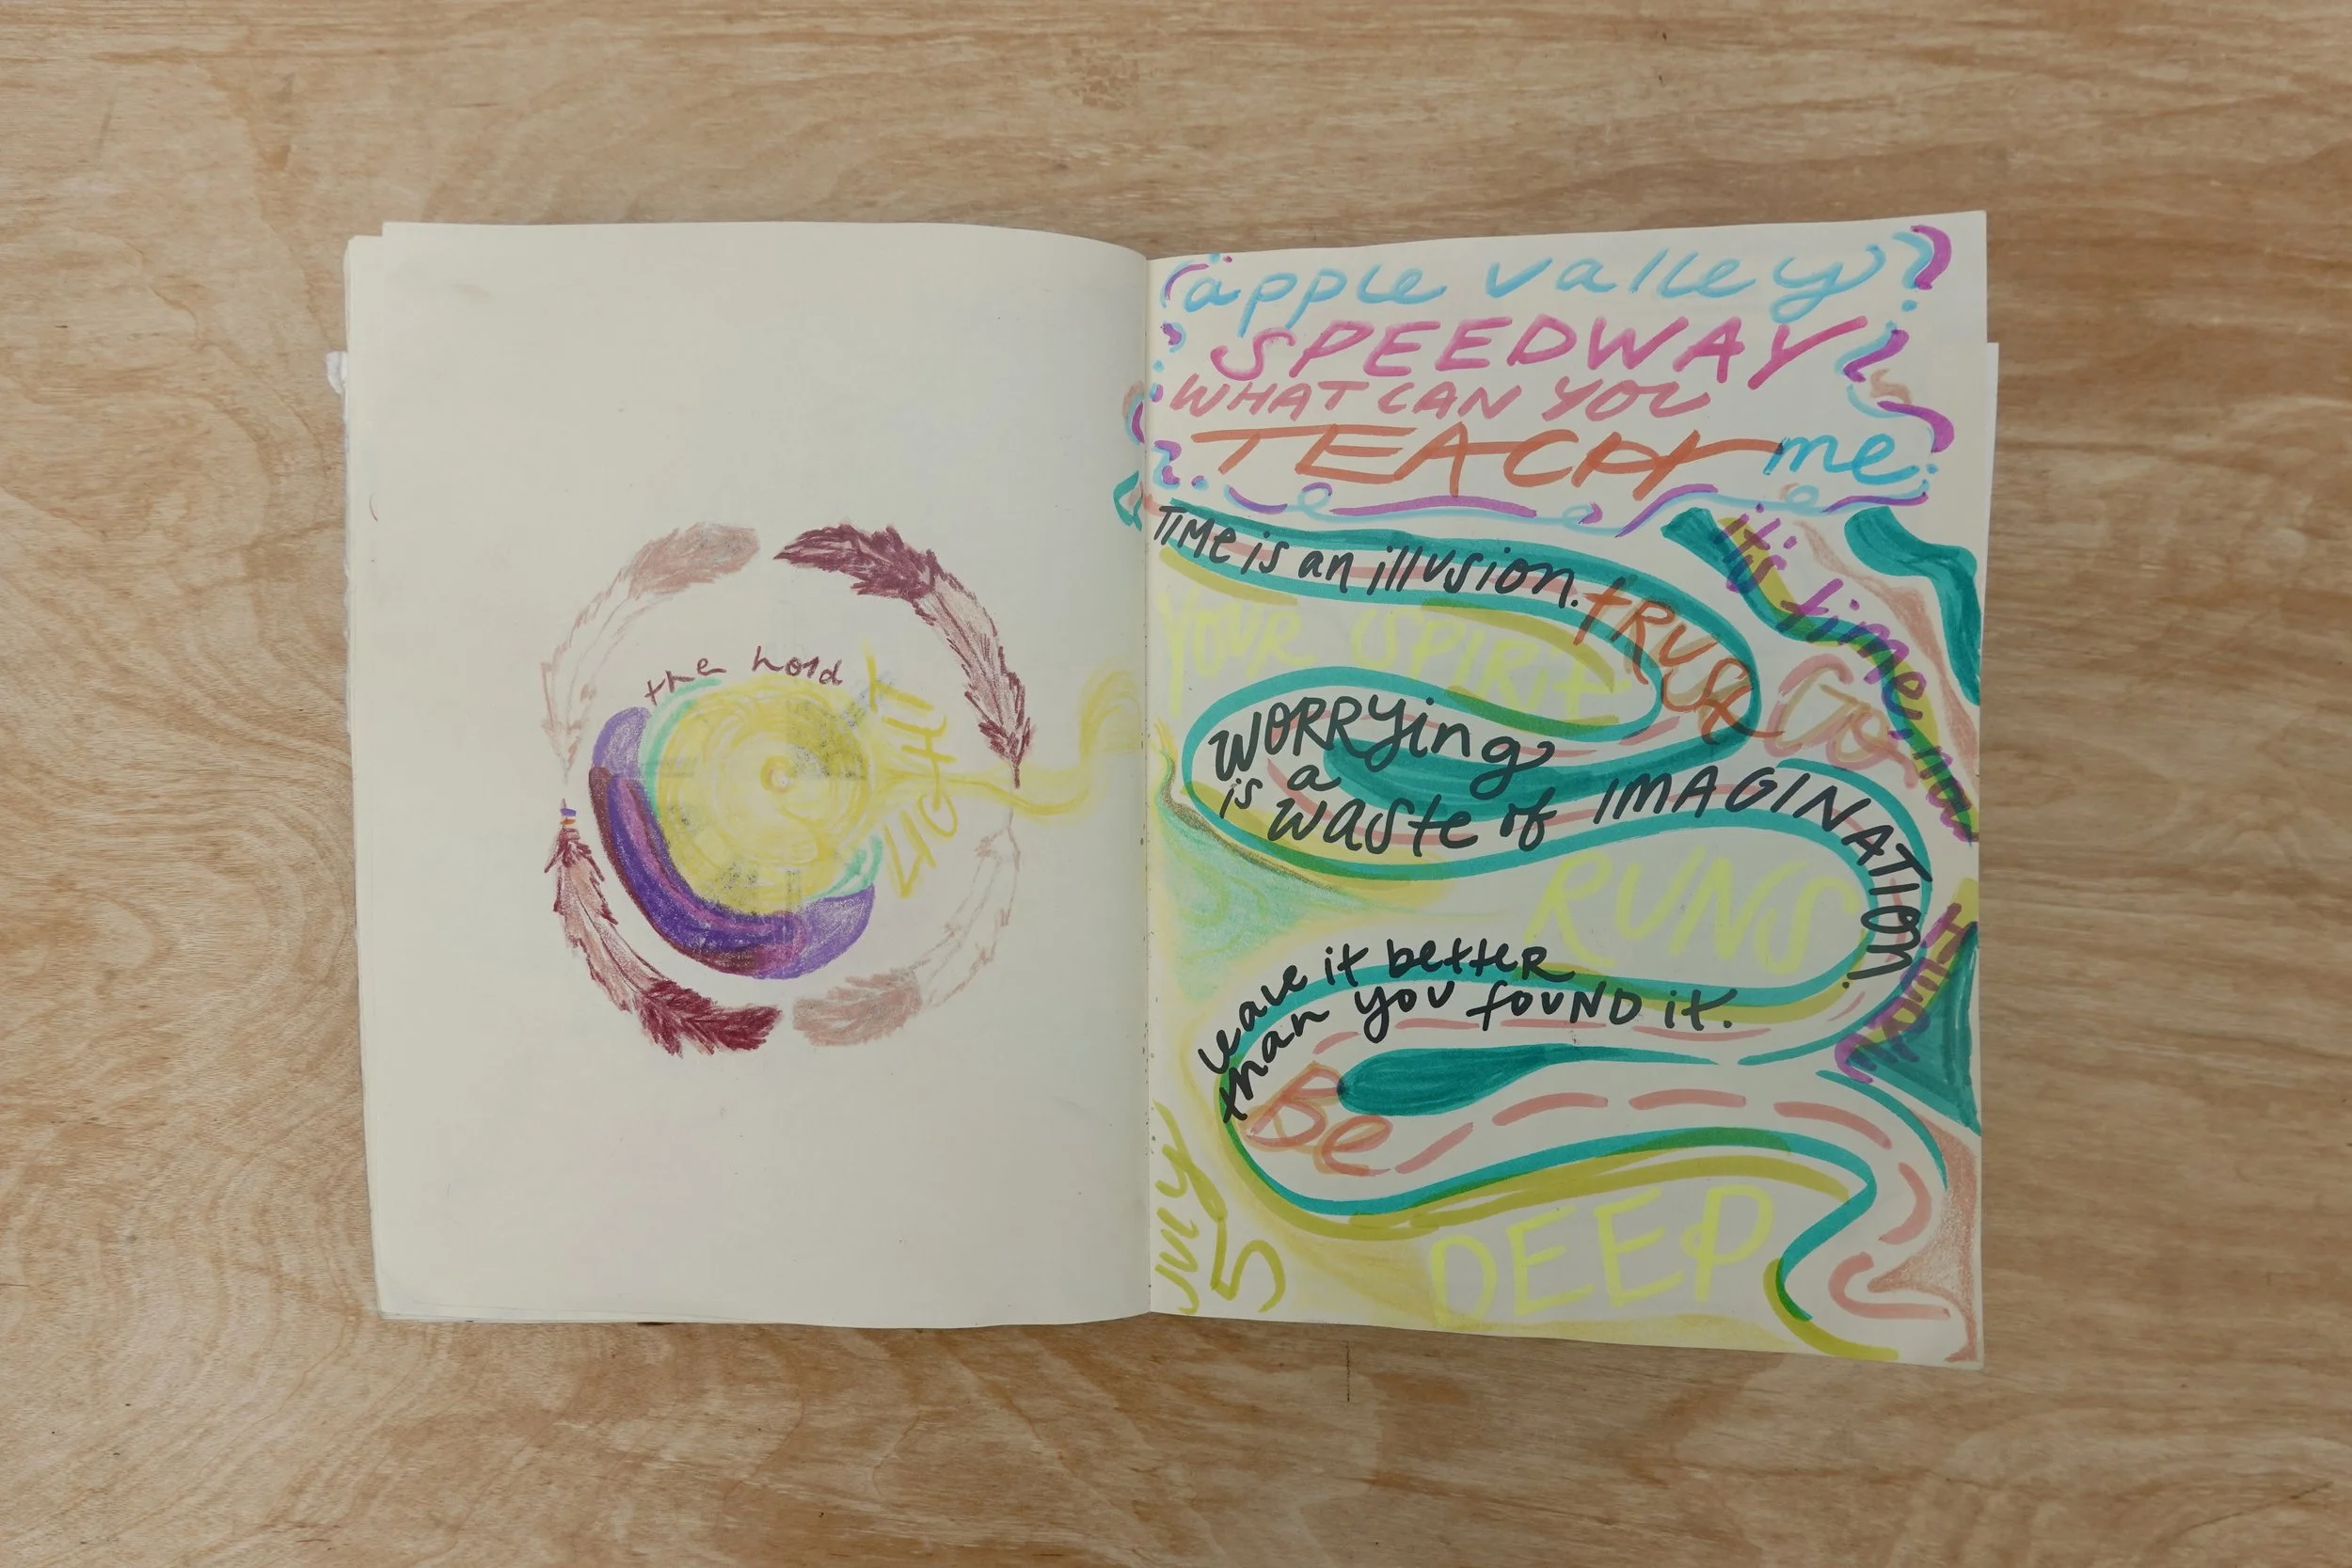 the hold
LIGHT
apple valley
SPEEDWAY
WHAT CAN YOU
TEACH me
TIME is an illusion.
tRUSt
it's time, now
YOUR SPIRit
Go
WORRYing
is a
waste of IMAGINATION.
RUNS
leave it better
than you found it.
Be
JULY
5
DEEP